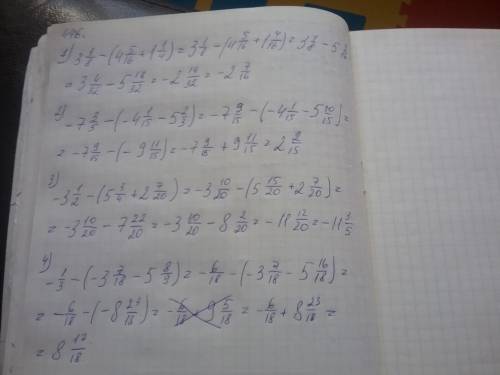 446.
1) 3 1/8 - (4 5/16 + 1 1/4) = 3 1/8 - (4 5/16 + 1 4/16) = 3 1/8 - 5
= 3 4/32 - 5 18/32 = -2 14/32 = -2 7/16
2) -7 3/5 - (-4 1/15 - 5 2/3) = -7 9/15 - (-4 1/15 - 5 10/15) =
= -7 9/15 - (-9 11/15) = -7 9/15 + 9 11/15 = 2 2/15
3) -3 1/2 - (5 3/4 + 2 7/20) = -3 10/20 - (5 15/20 + 2 7/20) =
= -3 10/20 - 7 22/20 = -3 10/20 - 8 2/20 = -11 12/20 = -11 3/5
4) -1/3 - (-3 7/18 - 5 8/9) = -6/18 - (-3 7/18 - 5 16/18) =
= -6/18 - (-8 23/18) = = -6/18 + 8 23/18 =
= 8 17/18